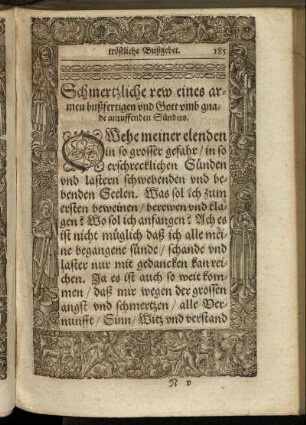 tröstliche Bußgebet. 185
Schmertzliche rew eines ar-
men bußfertigen vnd Gott vmb gna-
de anruffenden Sünders.
OWehe meiner elenden
in so grosser gefahr / in so
erschrecklichen Sünden
vnd lastern schwebenden vnd be-
benden Seelen. Was sol ich zum
ersten beweinen / berewen vnd kla-
gen? Wo sol ich anfangen? Ach es
ist nicht müglich daß ich alle mei-
ne begangene sünde / schande vnd
laster nur mit gedancken kan rei-
chen. Ja es ist auch so weit kom-
men / daß mir wegen der grossen
angst vnd schmertzen / alle Ver-
nunfft / Sinn / Witz vnd verstand
N v